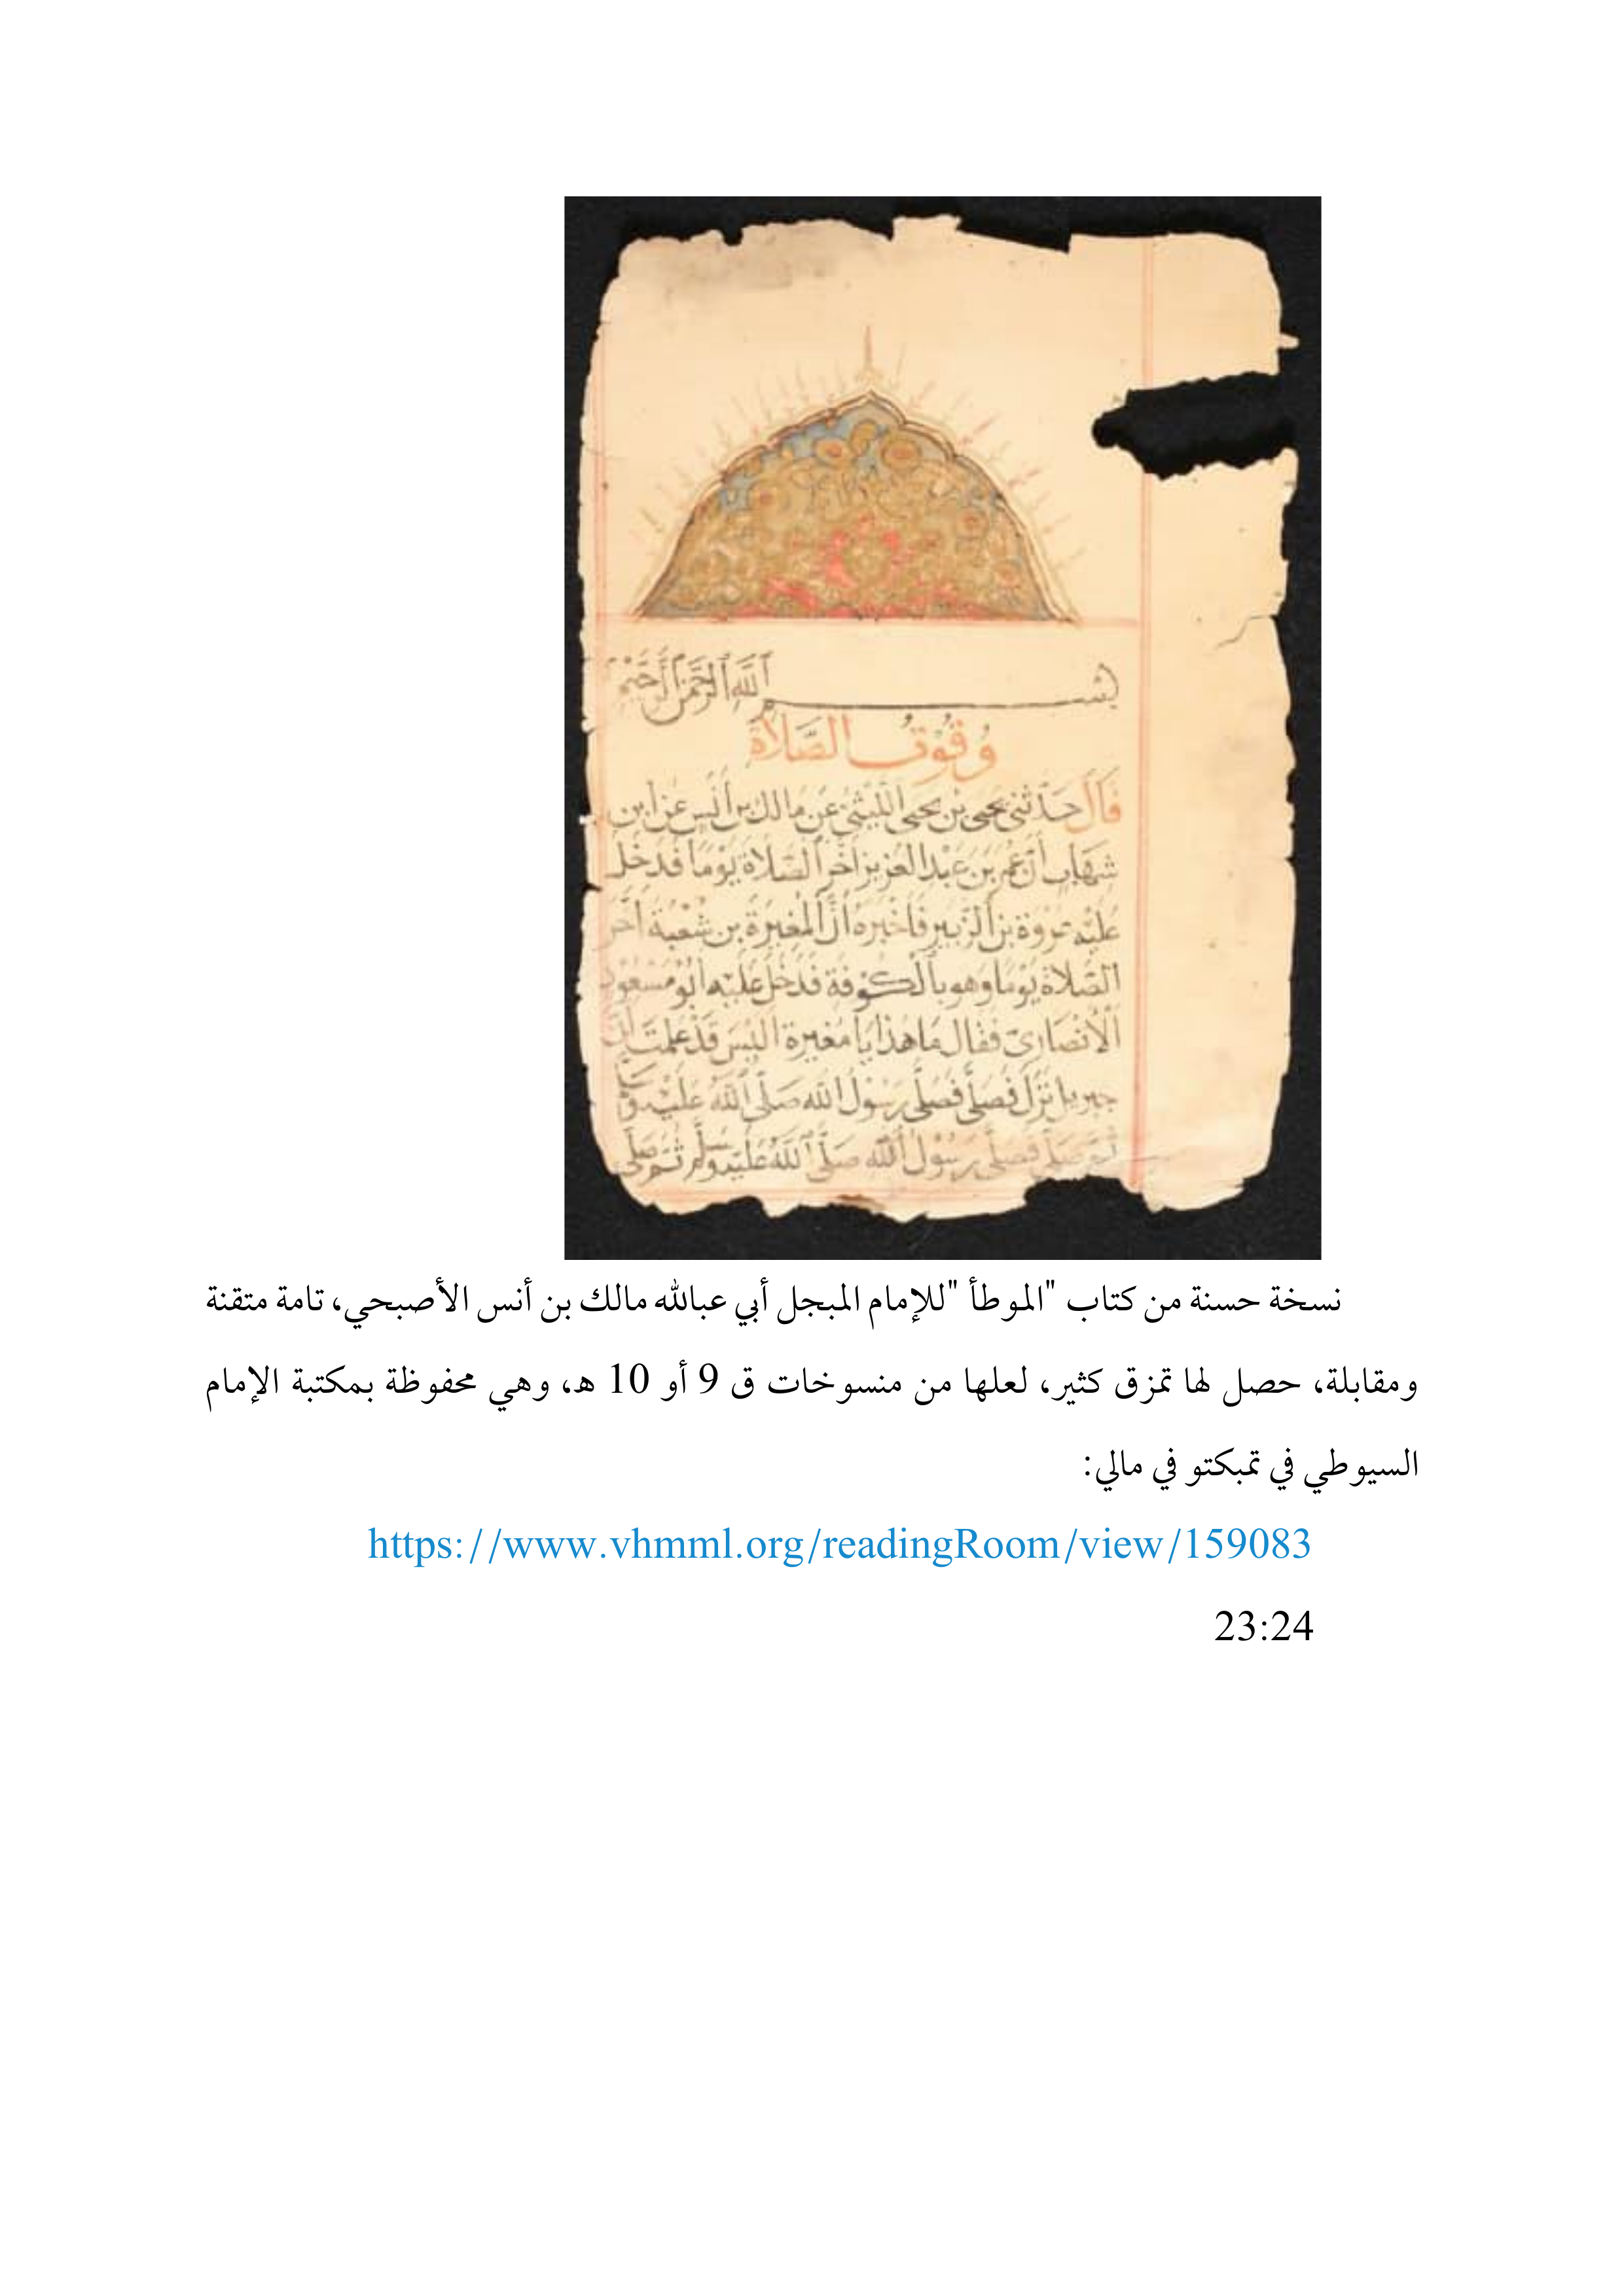 بسم الله الرحمن الرحيم
وقوت الصلاة
قال حدثني يحيى بن يحيى الليثي عن مالك بن أنس عن ابن
شهاب أن عمر بن عبد العزيز أخر الصلاة يوما فدخل
عليه عروة بن الزبير فاخبره ان المغيرة بن شعبة أخر
الصلاة يوما وهو بالكوفة فدخل عليه ابو مسعود
الأنصاري فقال ما هذا يا مغيرة اليس قد علمت أن
جبريل نزل فصلى فصلى رسول الله صلى الله عليه وسلم
ثم صلى فصلى رسول الله صلى الله عليه وسلم ثم صلى
نسخة حسنة من كتاب "الموطأ "للإمام المبجل أبي عبالله مالك بن أنس الأصبحي، تامة متقنة
ومقابلة، حصل لها تمزق كثير، لعلها من منسوخات ق 9 أو 10 هـ، وهي محفوظة بمكتبة الإمام
السيوطي في تمبكتو في مالي:
https://www.vhmml.org/readingRoom/view/159083
23:24